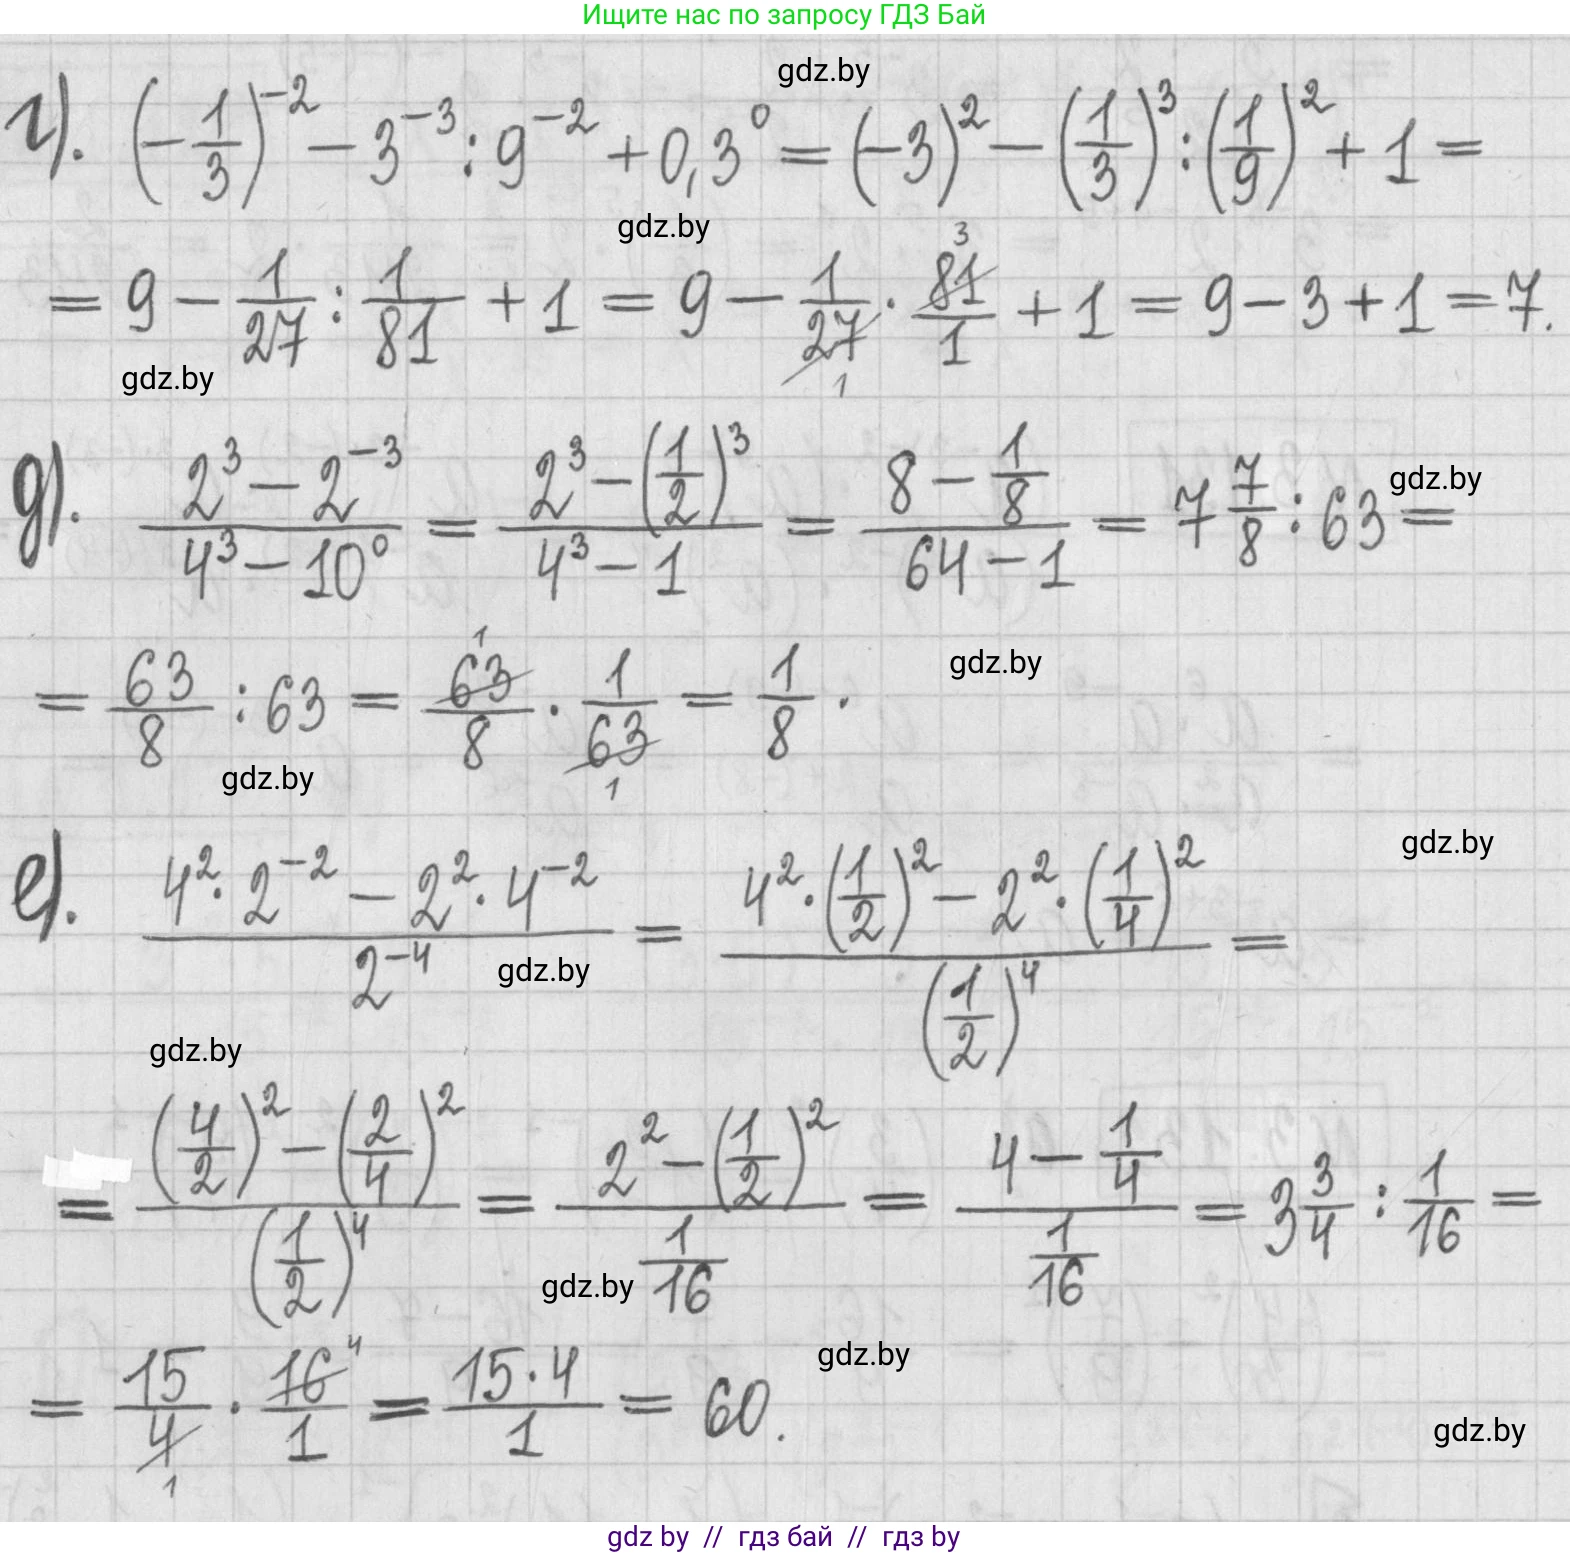 Ищите нас по запросу ГДЗ Бай
gdz.by
г). (-1/3)^-2 - 3^-3 : 9^-2 + 0,3^0 = (-3)^2 - (1/3)^3 : (1/9)^2 + 1 =
gdz.by
= 9 - 1/27 : 1/81 + 1 = 9 - 1/27 · 81/1 + 1 = 9 - 3 + 1 = 7.
gdz.by
д). (2^3 - 2^-3)/(4^3 - 10^0) = (2^3 - (1/2)^3)/(4^3 - 1) = (8 - 1/8)/(64 - 1) = 7 7/8 : 63 =
gdz.by
= 63/8 : 63 = 63/8 · 1/63 = 1/8 .
gdz.by
gdz.by
gdz.by
е). (4^2 · 2^-2 - 2^2 · 4^-2)/(2^-4) = (4^2 · (1/2)^2 - 2^2 · (1/4)^2)/((1/2)^4) =
gdz.by
gdz.by
= ((4/2)^2 - (2/4)^2)/((1/2)^4) = (2^2 - (1/2)^2)/(1/16) = (4 - 1/4)/(1/16) = 3 3/4 : 1/16 =
gdz.by
= 15/4 · 16/1 = (15 · 4)/1 = 60.
gdz.by
gdz.by
gdz by // гдз бай // гдз by